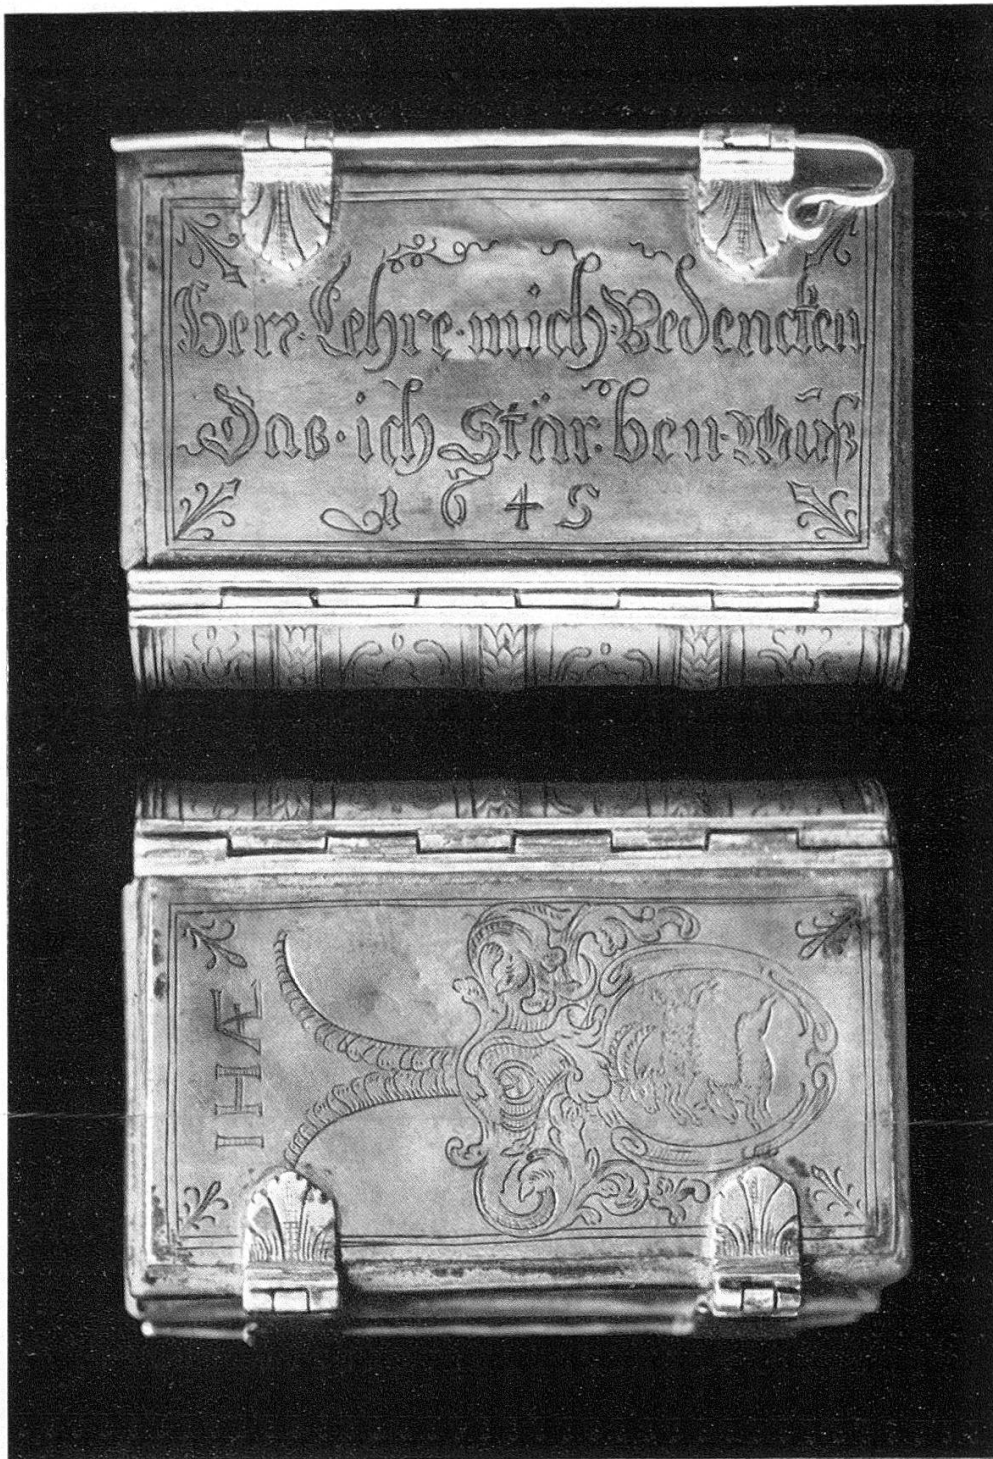 Herr·Lehre·mich·Bedencken
Das·ich Stär·ben·Muß
1645
IHÆ